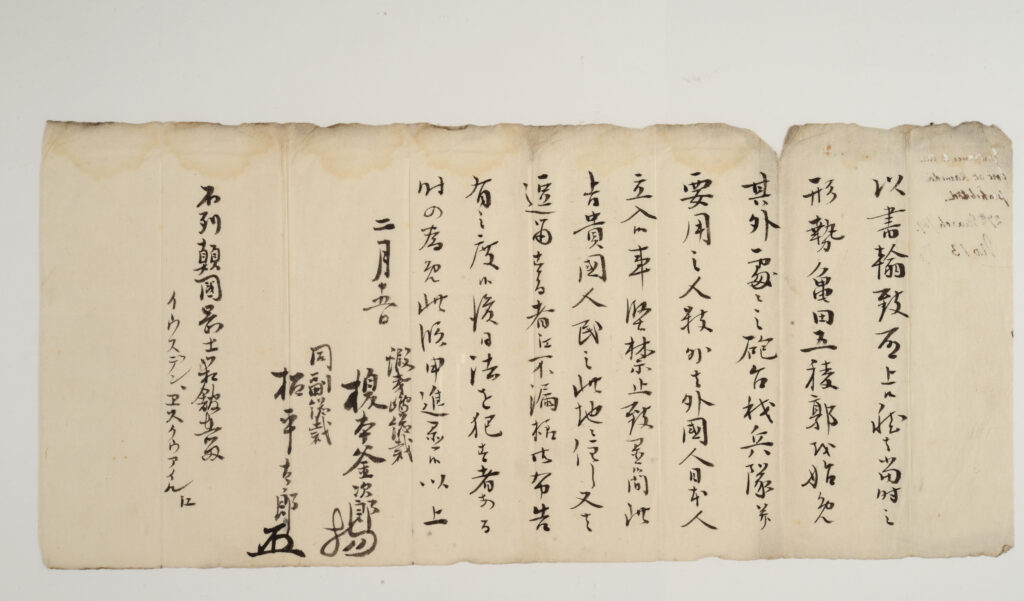 以書翰致啓上候然者當時之
形勢亀田五稜郭を始免
其外處之砲台兵隊並
要用之人数外者外國人日本人
立入候事堅禁止致置候間此
旨貴國人民之此地に住し又者
逗留する者江不漏様御布告
有之度候後日法を犯す者ある
時の為免此段申進置候以上
二月十五日
蝦夷島総裁
榎本釜次郎
同副総裁
松平太郎
不列顛國岡士箱館在留
イウスデン、エスクワイル江